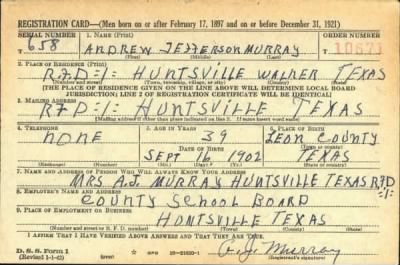 REGISTRATION CARD—(Men born on or after February 17, 1897 and on or before December 31, 1921)
SERIAL NUMBER 1. NAME (Print) ORDER NUMBER
T 658 ANDREW JEFFERSON MURRAY T 10671
(First) (Middle) (Last)
2. PLACE OF RESIDENCE (Print)
RFD=1= HUNTSVILLE WALKER TEXAS
(Number and street) (Town, township, village, or city) (County) (State)
[THE PLACE OF RESIDENCE GIVEN ON THE LINE ABOVE WILL DETERMINE LOCAL BOARD
JURISDICTION; LINE 2 OF REGISTRATION CERTIFICATE WILL BE IDENTICAL]
3. MAILING ADDRESS
RFD=1= HUNTSVILLE TEXAS
[Mailing address if other than place indicated on line 2. If same insert word same]
4. TELEPHONE 5. AGE IN YEARS 6. PLACE OF BIRTH
NONE 39 LEON COUNTY
DATE OF BIRTH (Town or county)
SEPT 16 1902 TEXAS
(Exchange) (Number) (Mo.) (Day) (Yr.) (State or country)
7. NAME AND ADDRESS OF PERSON WHO WILL ALWAYS KNOW YOUR ADDRESS
MRS A.J. MURRAY HUNTSVILLE TEXAS RFD
=1=
8. EMPLOYER'S NAME AND ADDRESS
COUNTY SCHOOL BOARD
9. PLACE OF EMPLOYMENT OR BUSINESS
HUNTSVILLE TEXAS
(Number and street or R. F. D. number) (Town) (County) (State)
I AFFIRM THAT I HAVE VERIFIED ABOVE ANSWERS AND THAT THEY ARE TRUE.
D. S. S. Form 1
(Revised 1-1-42) (over) GPO 16-21630-1 A. J. Murray